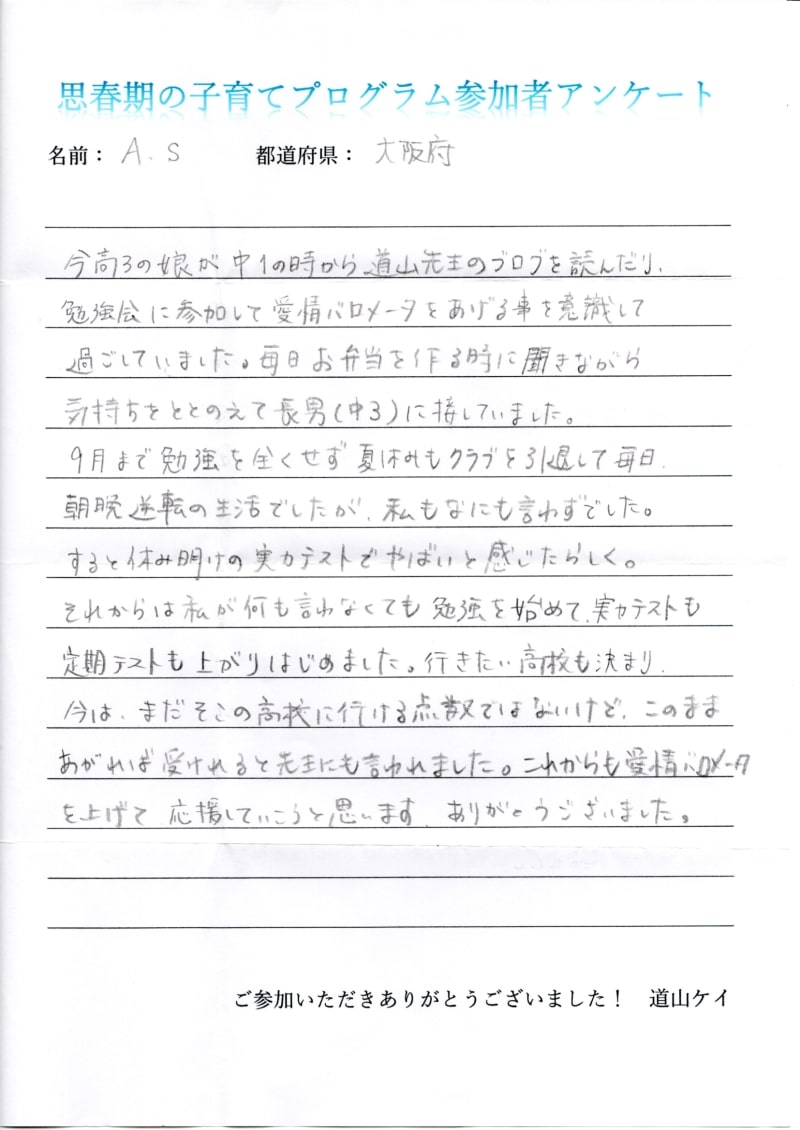 思春期の子育てプログラム参加者アンケート
名前： A.S 都道府県： 大阪府
今高3の娘が中1の時から道山先生のブログを読んだり、
勉強会に参加して愛情バロメータをあげる事を意識して
過ごしていました。毎日お弁当を作る時に聞きながら
気持ちをととのえて長男(中3)に接していました。
9月まで勉強を全くせず夏休みもクラブを引退して毎日
朝晩逆転の生活でしたが、私もなにも言わずでした。
すると休み明けの実力テストでやばいと感じたらしく。
それからは私が何も言わなくても勉強を始めて、実力テストも
定期テストも上がりはじめました。行きたい高校も決まり、
今は、まだそこの高校に行ける点数ではないけど、このまま
あがれば受けれると先生にも言われました。これからも愛情バロメータ
を上げて応援していこうと思います。ありがとうございました。
ご参加いただきありがとうございました！ 道山ケイ